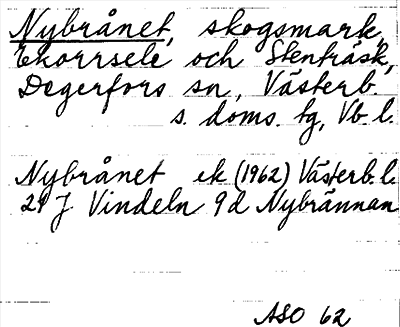 Nybrånet, skogsmark,
Ekorrsele och Stenträsk,
Degerfors sn, Västerb.
s. doms. tg, Vb. l.
Nybrånet ek (1962) Västerb. l.
21 J Vindeln 9 d Nybrännan
ASO 62